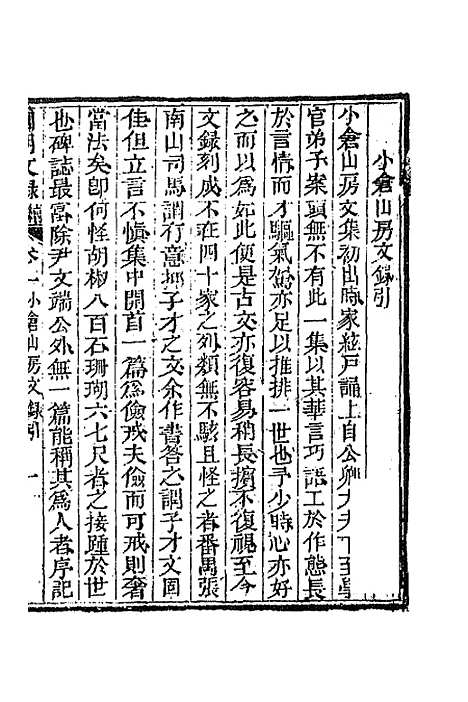 小倉山房文錄引
小倉山房文集初出時家絃戶誦上自公卿大夫下至學
官弟子案頭無不有此一集以其華言巧語工於作態長
於言情而才驅氣駕亦足以推排一世也予少時心亦好
之而以爲如此便是古文亦復容易稍長擯不復視至今
文錄刻成不在四十家之列類無不駭且怪之者番禺張
南山司馬謂行意抑子才之文余作書答之謂子才文固
佳但立言不慎集中開首一篇爲儉戒夫儉而可戒則奢
當法矣卽何怪胡椒八百石珊瑚六七尺者之接踵於世
也碑誌最富除尹文端公外無一篇能稱其爲人者序記
國朝文錄續 卷一小倉山房文錄引 一